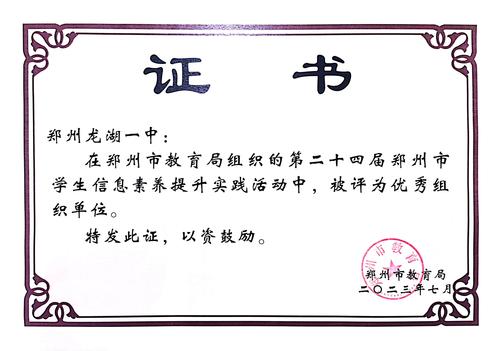 证书
郑州龙湖一中：
在郑州市教育局组织的第二十四届郑州市
学生信息素养提升实践活动中，被评为优秀组
织单位。
特发此证，以资鼓励。
郑州市教育
郑州市教育局
二〇二三年七月